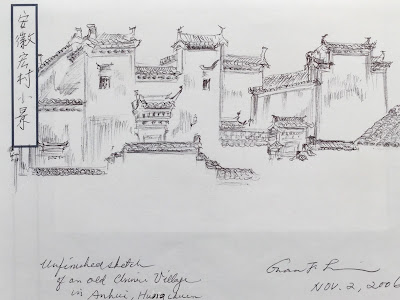 安徽宏村小景
Unfinished sketch
of an old Chinese Village
in Anhui, Hung
NOV. 2, 2006